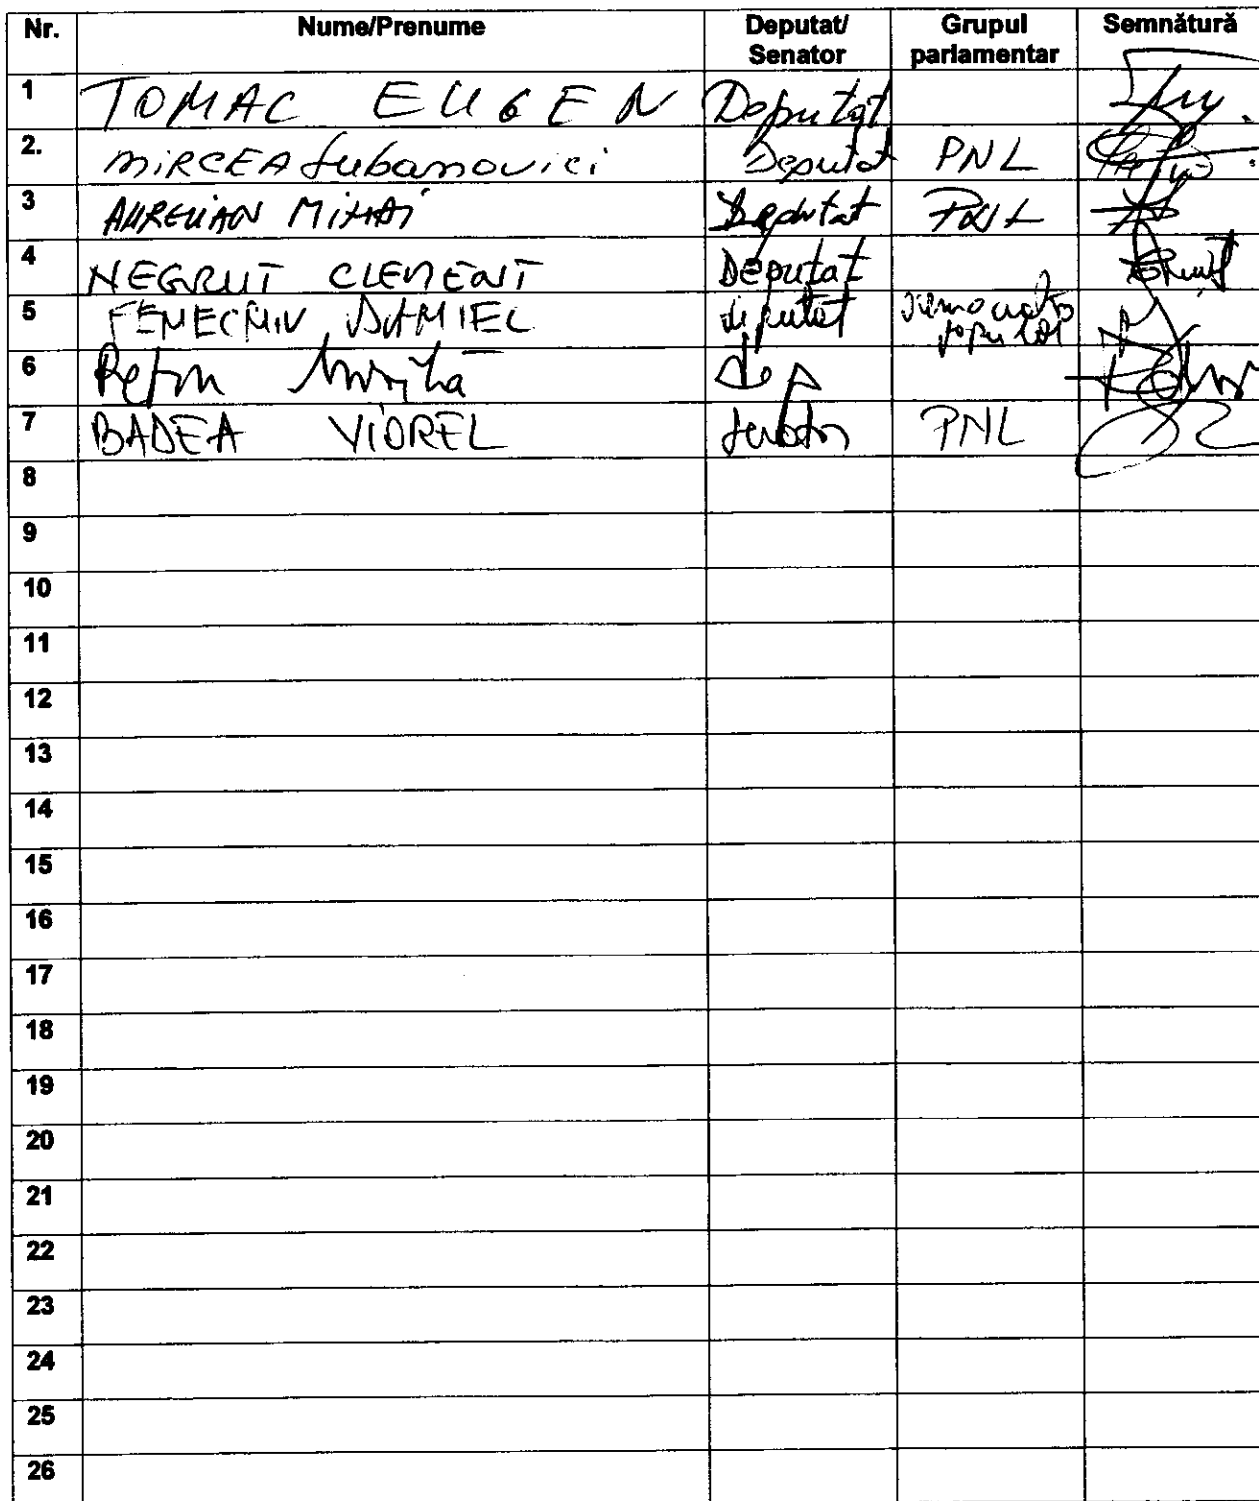 Nr. Nume/Prenume Deputat/ Senator Grupul parlamentar Semnătură
1 TOMAC EUGEN Deputat
2. MIRCEA Lubanovici Deputat PNL
3 AURELIAN MIHAI Deputat PNL
4 NEGRUT CLEMENT Deputat
5 FENECHIU DANIEL deputat democrat popular
6 Petru dep
7 BADEA VIOREL senator PNL
8
9
10
11
12
13
14
15
16
17
18
19
20
21
22
23
24
25
26